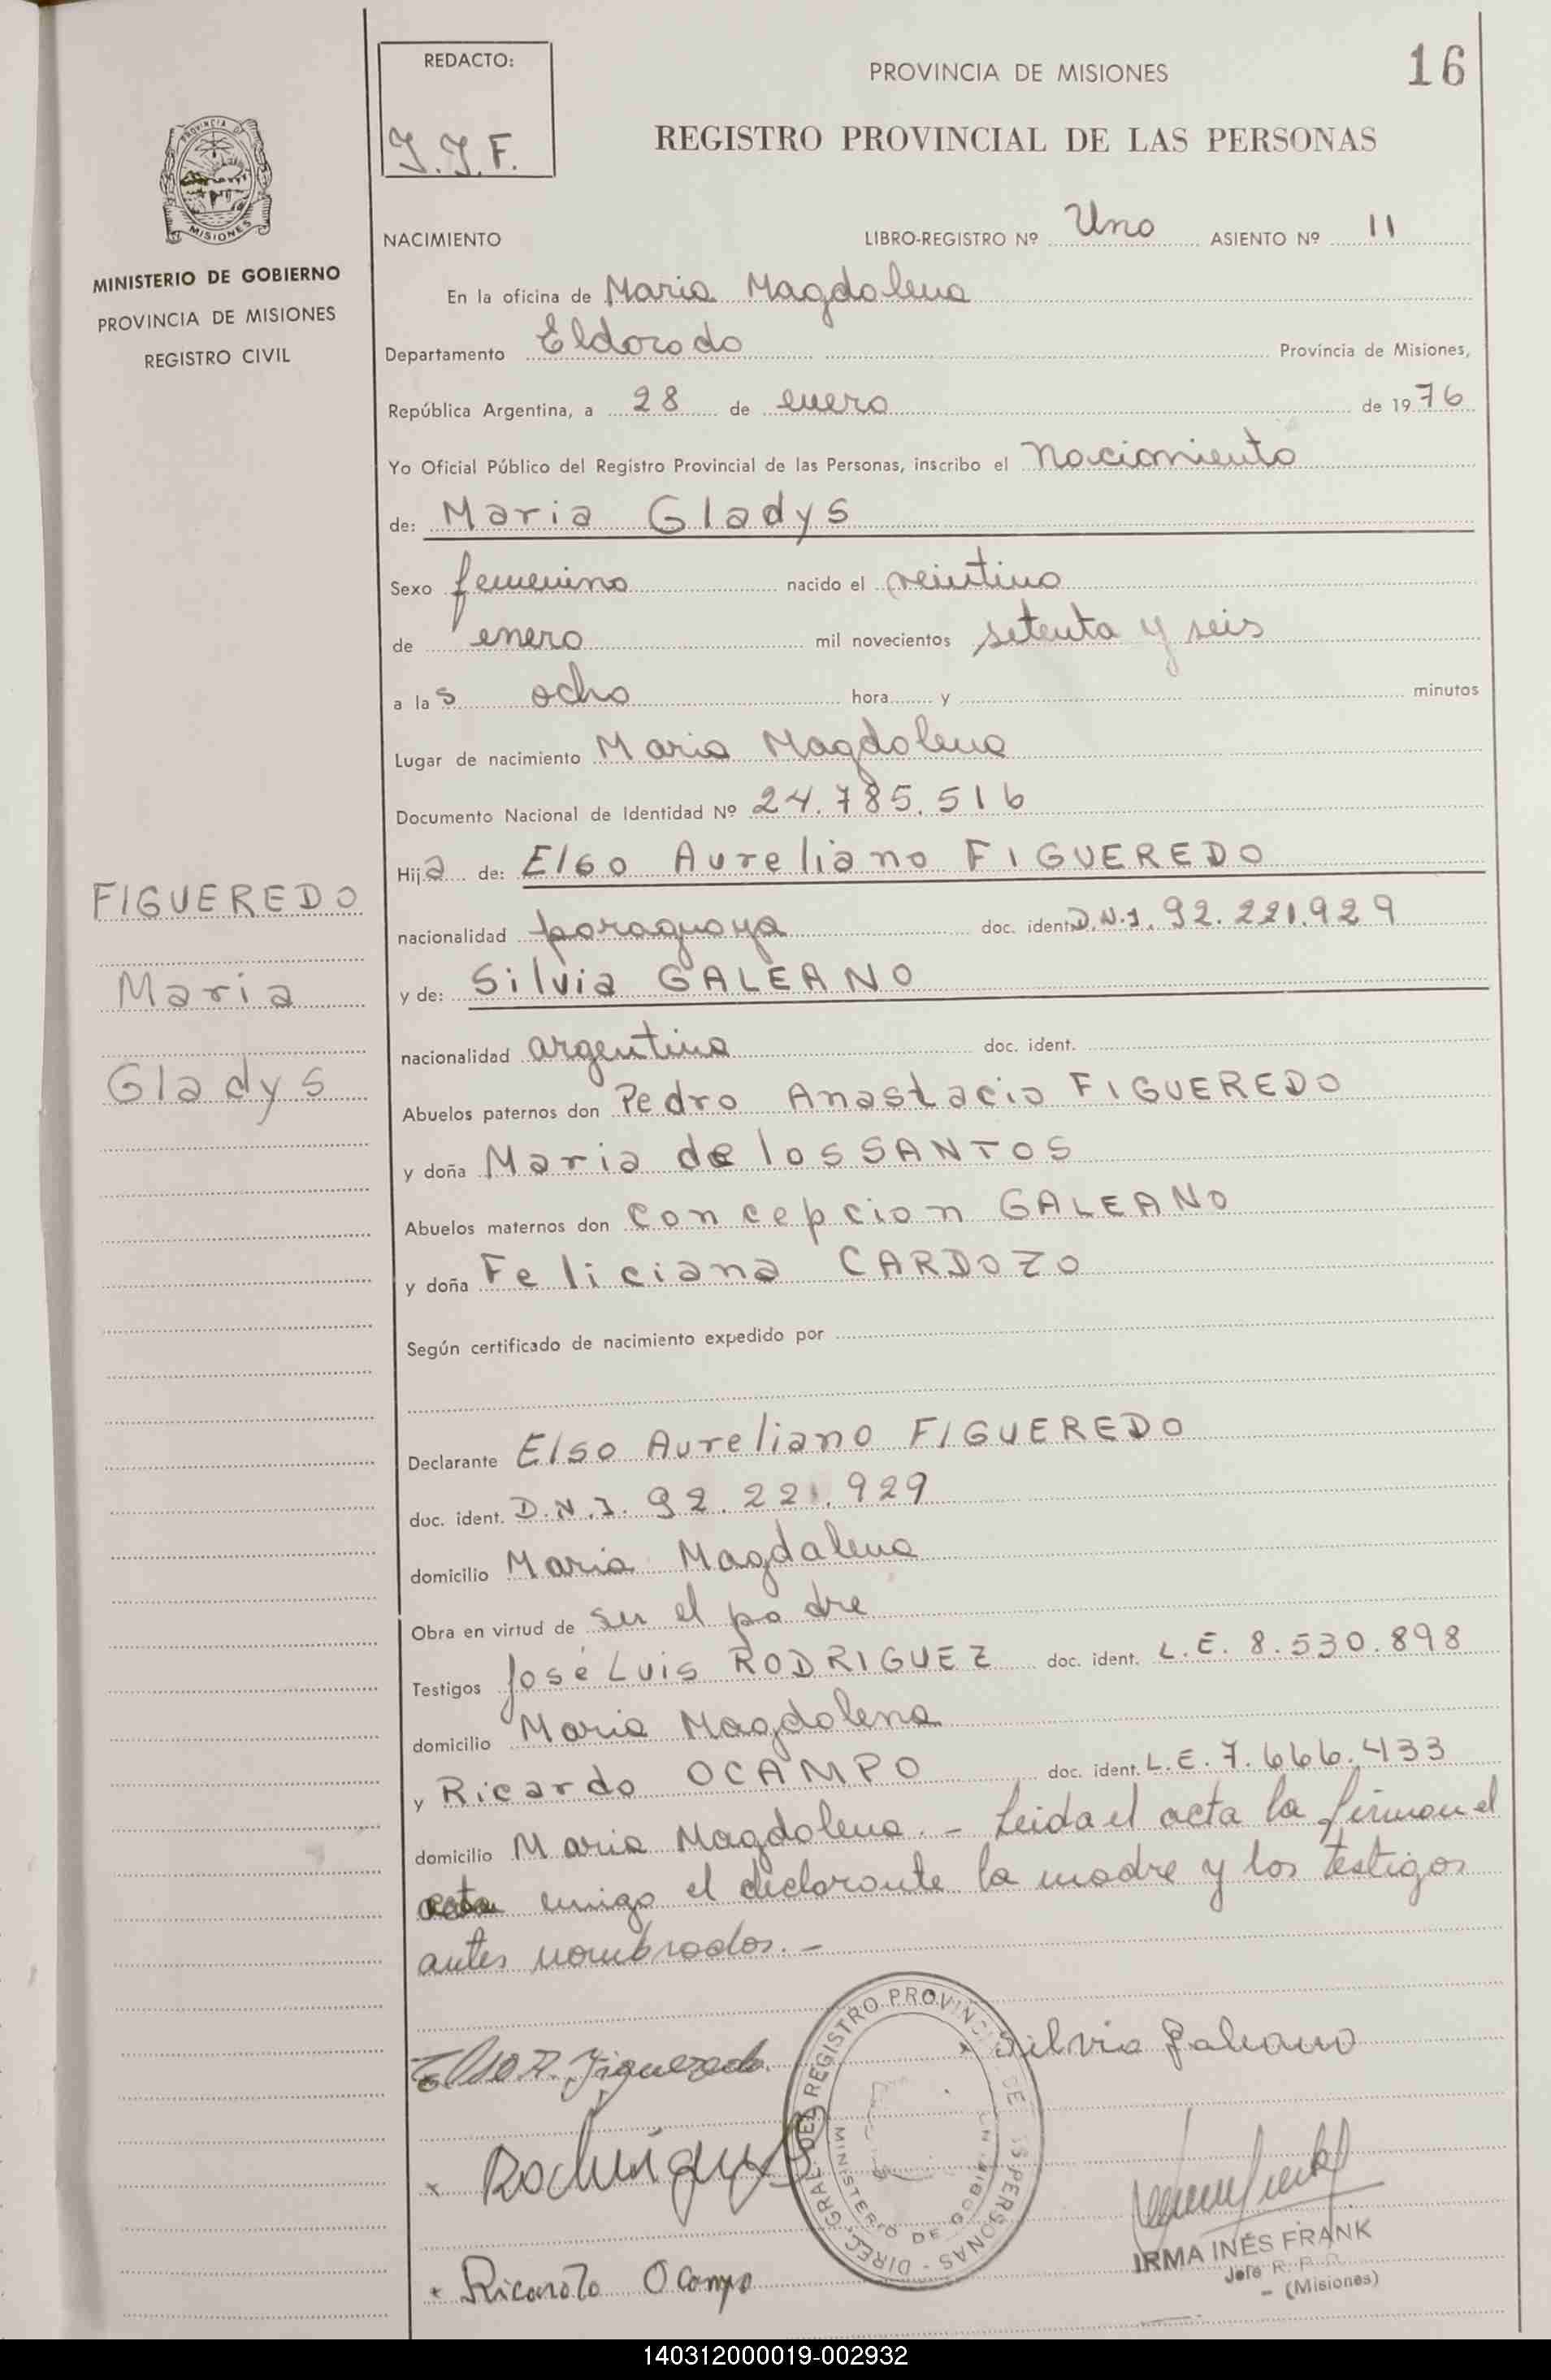 REDACTO:
J.J.F.
PROVINCIA DE MISIONES
16
REGISTRO PROVINCIAL DE LAS PERSONAS
PROVINCIA DE
MISIONES
MINISTERIO DE GOBIERNO
PROVINCIA DE MISIONES
REGISTRO CIVIL
NACIMIENTO LIBRO-REGISTRO Nº Uno ASIENTO Nº 11
En la oficina de Maria Magdalena
Departamento Eldorado Provincia de Misiones,
República Argentina, a 28 de enero de 1976
Yo Oficial Público del Registro Provincial de las Personas, inscribo el nacimiento
de: Maria Gladys
Sexo femenino nacido el veintiuno
de enero mil novecientos setenta y seis
a las ocho hora y minutos
Lugar de nacimiento Maria Magdalena
Documento Nacional de Identidad Nº 24.785.516
Hija de: Elso Aureliano FIGUEREDO
FIGUEREDO
Maria
Gladys
nacionalidad paraguaya doc. ident. D.N.I. 92.221.929
y de: Silvia GALEANO
nacionalidad argentina doc. ident.
Abuelos paternos don Pedro Anastacio FIGUEREDO
y doña Maria de los SANTOS
Abuelos maternos don Concepcion GALEANO
y doña Feliciana CARDOZO
Según certificado de nacimiento expedido por
Declarante Elso Aureliano FIGUEREDO
doc. ident. D.N.I. 92.221.929
domicilio Maria Magdalena
Obra en virtud de ser el padre
Testigos José Luis RODRIGUEZ doc. ident. L.E. 8.530.898
domicilio Maria Magdalena
y Ricardo OCAMPO doc. ident. L.E. 7.666.433
domicilio Maria Magdalena.- Leida el acta la firman el
acta migo el declarante la madre y los testigos
antes nombrados.-
Elso A. Figueredo
Silvia Galeano
DIREC. GRAL. DEL REGISTRO PROVINCIAL DE LAS PERSONAS -
MINISTERIO DE GOBIERNO
Rodriguez
IRMA INÉS FRANK
Jefe R. P. P.
- (Misiones)
Ricardo Ocampo
140312000019-002932